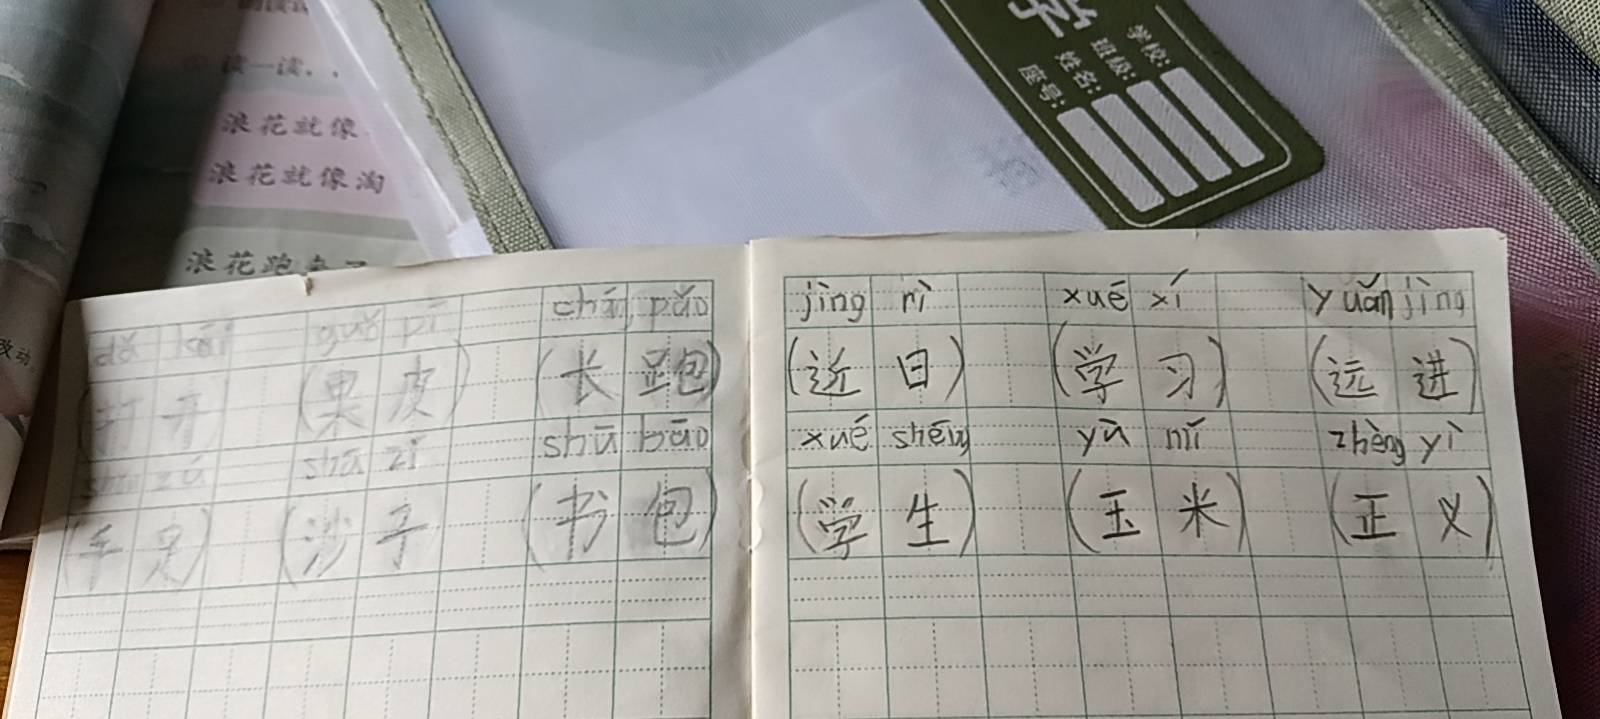 读一读
浪花就像
浪花就像淘
浪花跑来了
改动
学校:
班级:
姓名:
座号:
dǎ kāi guǒ pí cháng pǎo
(打开) (果皮) (长跑)
shǒu zú shā zǐ shū bāo
(手足) (沙子) (书包)
jìng rì xuē xí yuǎn jìng
(近日) (学习) (远进)
xué shēng yù mǐ zhèng yì
(学生) (玉米) (正义)